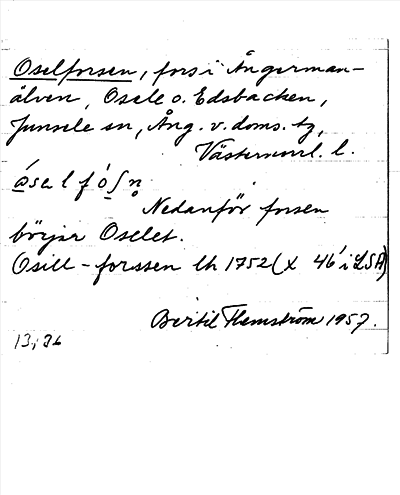 Oselforsen, fors i Ångerman-
älven, Osele o. Edsbacken,
Junsele sn, Ång. v. doms. tg,
Västernorrl. l.
Nedanför forsen
börjar Oselet.
Osill-forssen lh 1752 (X 46¹ i LSA)
Bertil Flemström 1957.